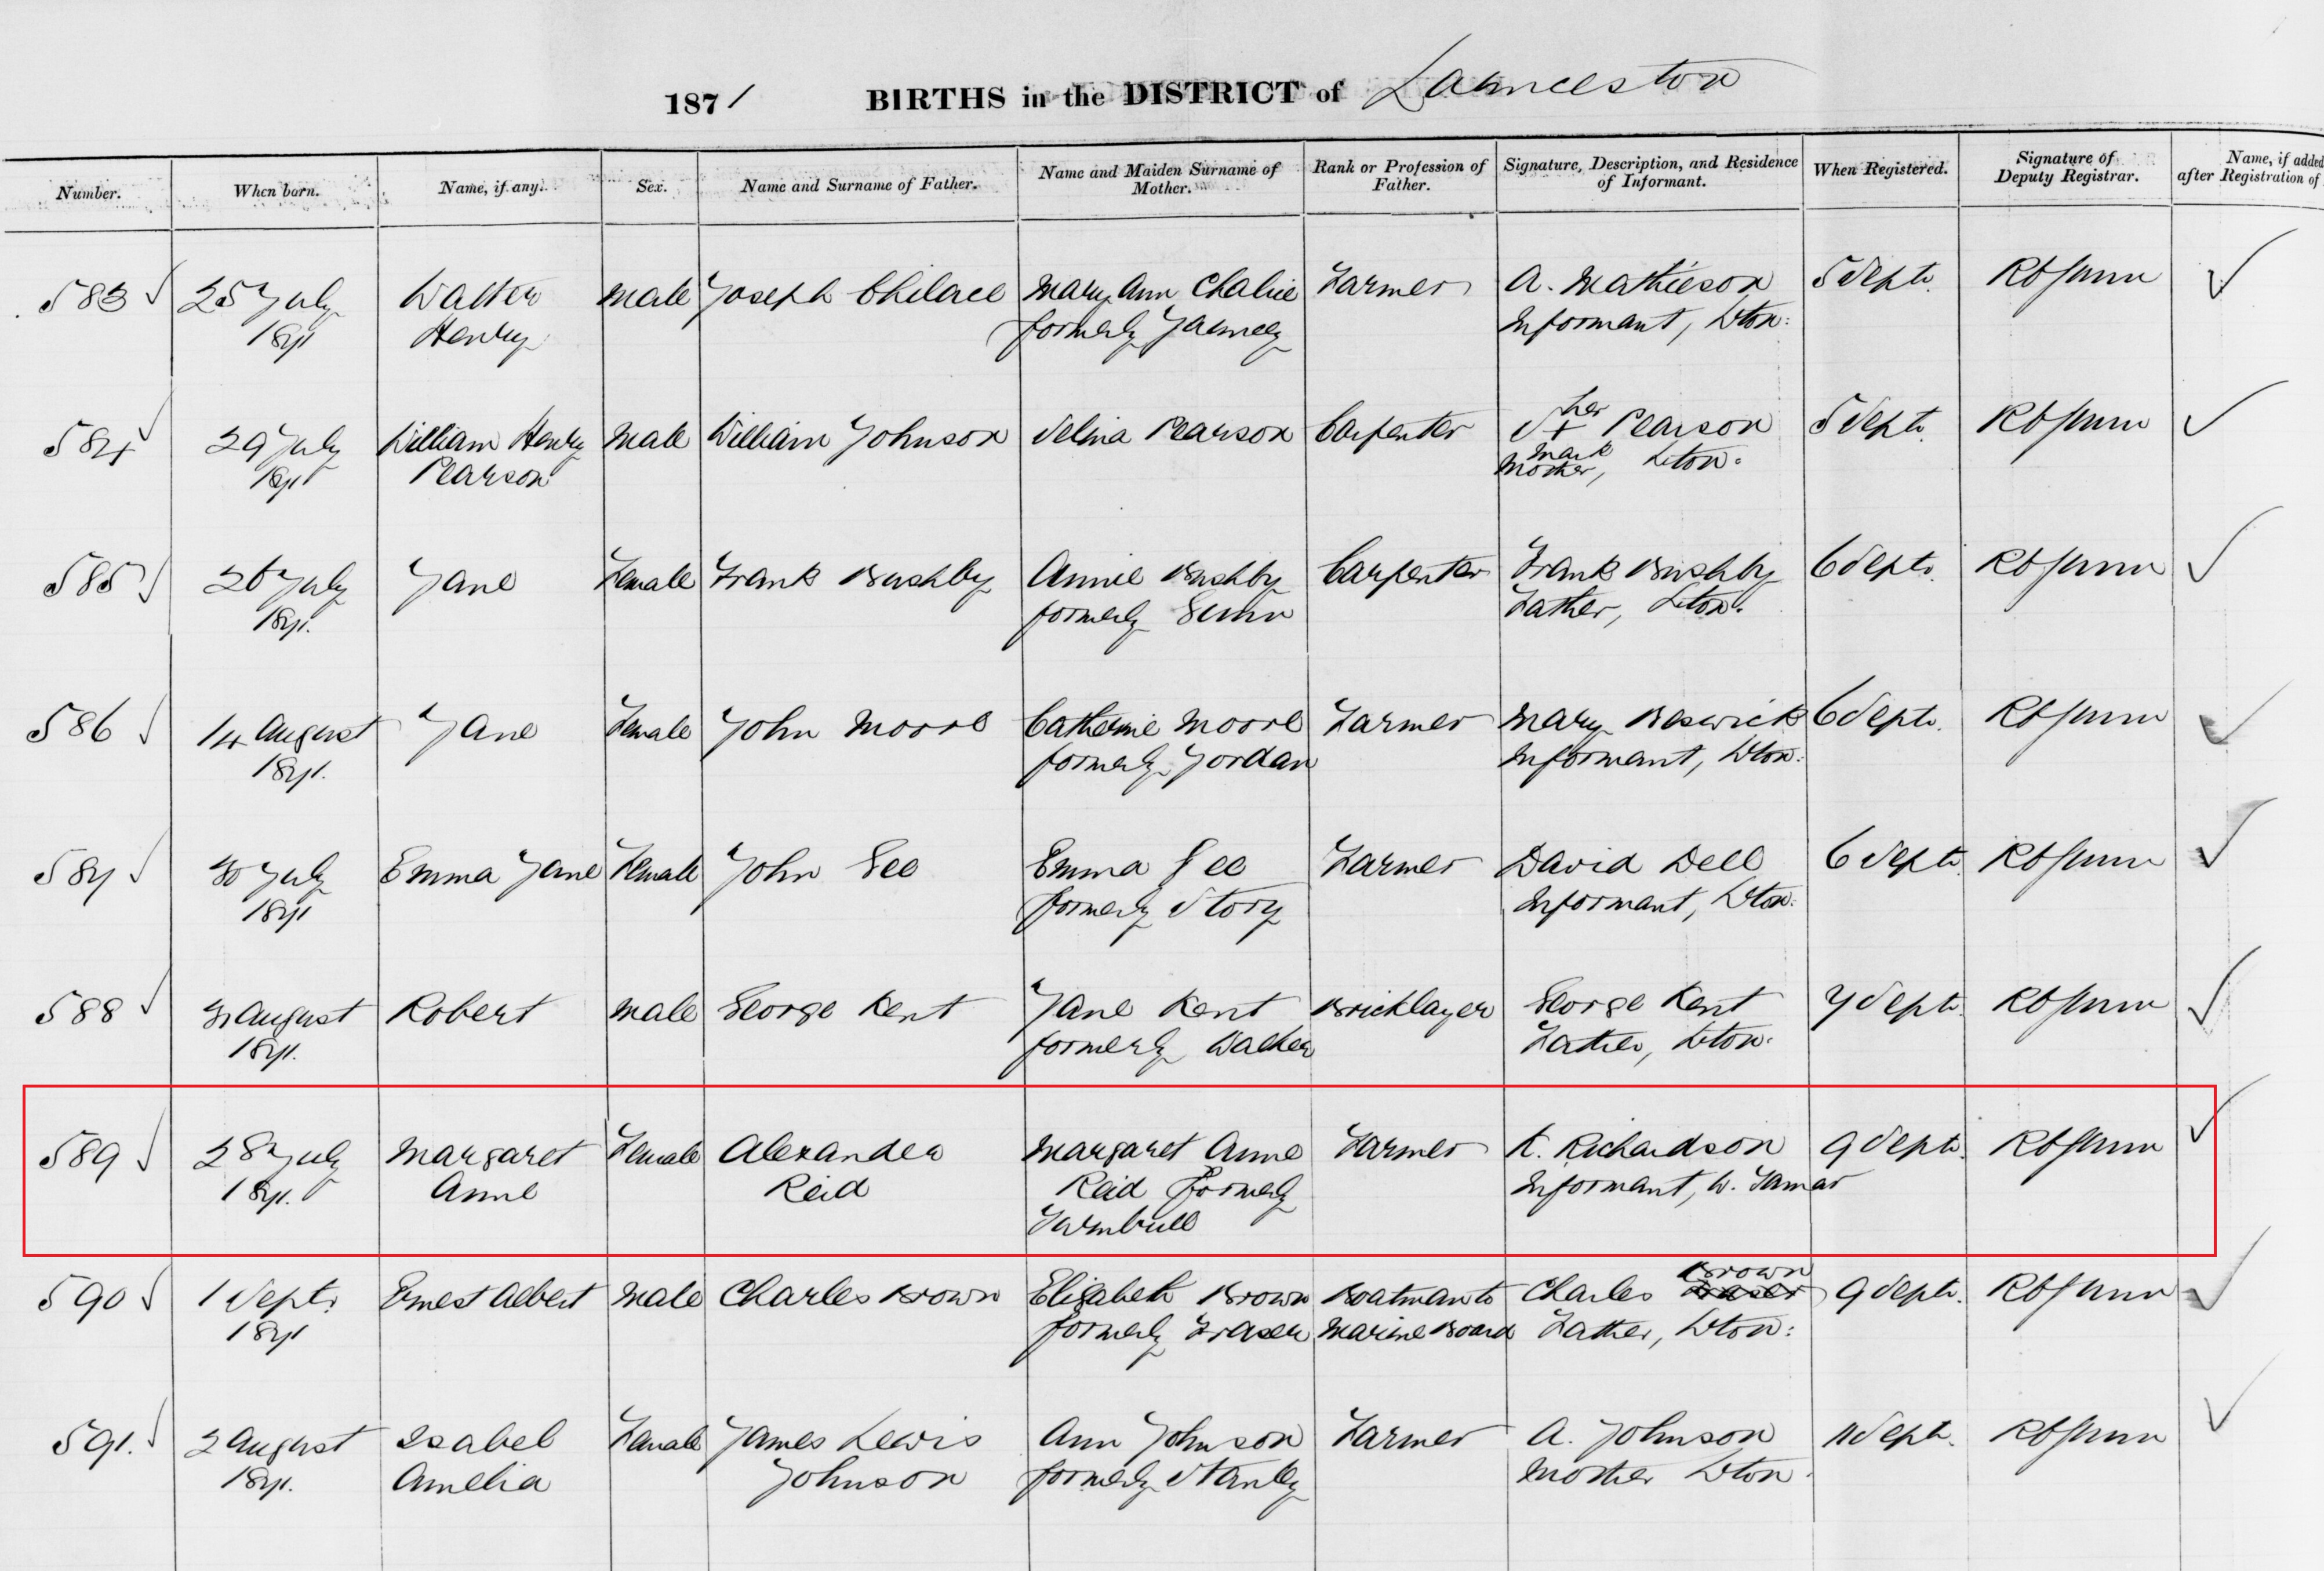 1871 BIRTHS in the DISTRICT of Launceston
Number. When born. Name, if any. Sex. Name and Surname of Father. Name and Maiden Surname of Mother. Rank or Profession of Father. Signature, Description, and Residence of Informant. When Registered. Signature of Deputy Registrar. Name, if added after Registration of
583 25 July Walter Male Joseph Mary Ann Farmer A. Mathieson 5 Septr.
1871 Henry formerly Informant, Lton:
584 29 July William Henry Male William Johnson Selina Pearson Carpenter S her x mark Pearson 5 Septr.
1871 Pearson Mother, Lton.
585 26 July Jane Female Frank Bushby Annie Bushby Carpenter Frank Bushby 6 Septr.
1871. formerly Gunn Father, Lton.
586 14 August Jane Female John Moore Catherine Moore Farmer Mary Beswick 6 Septr.
1871. formerly Jordan Informant, Lton:
587 30 July Emma Jane Female John Gee Emma Gee Farmer David Dell 6 Septr.
1871 formerly Story Informant, Lton:
588 31 August Robert Male George Kent Jane Kent Bricklayer George Kent 7 Septr.
1871. formerly Walker Father, Lton.
589 28 July Margaret Female Alexander Margaret Anne Farmer K. Richardson 9 Septr.
1871. Anne Reid Reid formerly Informant, W. Tamar
Turnbull
590 1 Septr. Ernest Albert Male Charles Brown Elizabeth Brown Boatman to Charles Brown 9 Septr.
1871 formerly Fraser Marine Board Father, Lton:
591. 2 August Isabel Female James Lewis Ann Johnson Farmer A. Johnson 11 Septr.
1871. Amelia Johnson formerly Stanley Mother Lton.